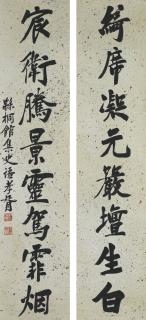 綺席凝元嚴壇生白
宸衛騰景靈駕霏烟
縣桐館集史語孝胥